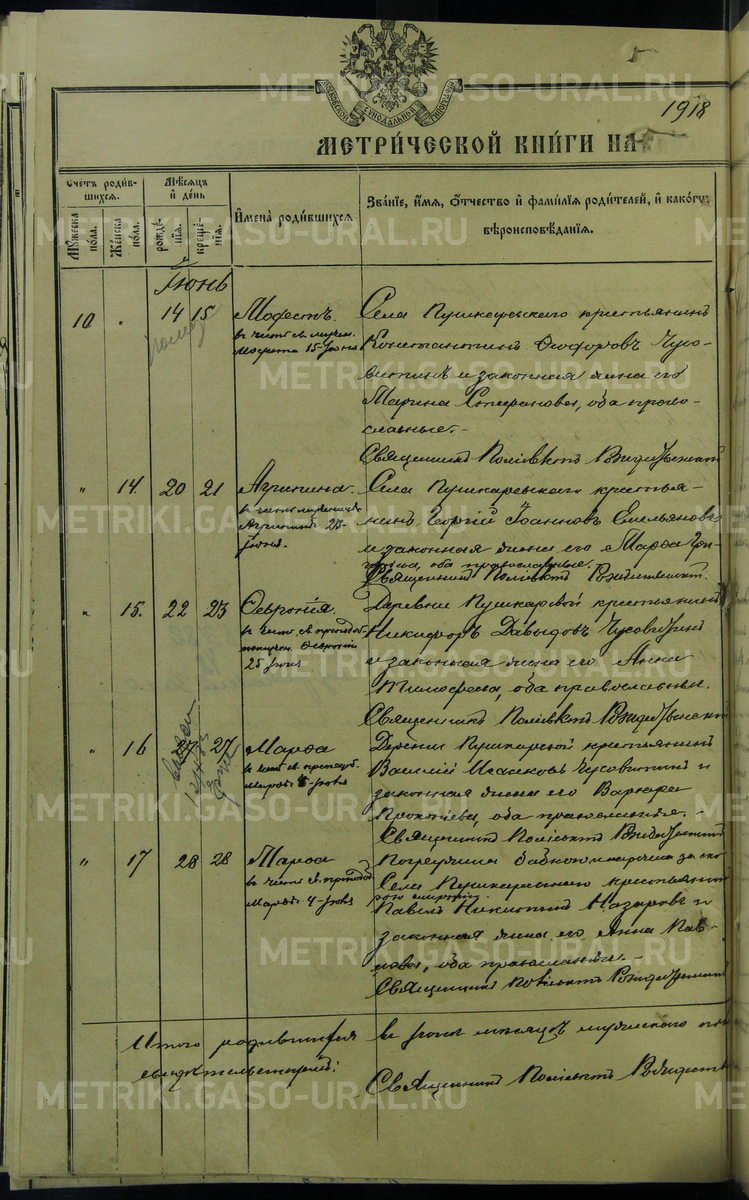 МОСКОВСКОЙ СѴНОДАЛЬНОЙ ТИПОГРАФІИ
1918
МЕТРИ́ЧЕСКОЙ КНИ́ГИ НА
Счетъ роди́в-
шихся.
Мꙋ́жеска по́ла.
Же́нска по́ла.
Мѣ́сяцъ
и҆ де́нь
рожде́нїя.
креще́нїя.
И҆мена̀ роди́вшихся
Зва́нїе, и҆́мя, ѻ҆́тчество и҆ фами́лїя роди́телей, и҆ како́гѡ
вѣроисповѣ́данїя.
Іюнь
10
14 15
Модестъ.
въ честь св. мучен.
Модеста 15 Іюня
Села Пушкаревскаго крестьянинъ
Константинъ Ѳеодоровъ Чусо-
витинъ и законная жена его
Марина Стефановна, оба право-
славные.-
Священникъ Поліевктъ
" 14. 20 21
Агрипина.
въ честь мученицы
Агрипины 23-
Іюня.
Села Пушкаревскаго крестья-
нинъ Георгій Іоанновъ Емельяновъ
и законная жена его Марѳа
оба православные.
Священникъ Поліевктъ
" 15. 22 23
Февронія.
въ честь св. препод.
Февроніи
25 Іюня
Деревни Пушкаревой крестьянинъ
Никифоръ Давыдовъ Чусовитинъ
и законная жена его Анна
Тимофеева, оба православные.
Священникъ Поліевктъ
" 16 27 27
Марѳа
въ честь св. препод.
Марѳы Іюня
Деревни Пушкаревой крестьянинъ
Василій Исааковъ Чусовитинъ и
законная жена его Варвара
Прокопіева, оба православные.
Священникъ Поліевктъ
" 17 28 28
Марѳа
въ честь св. препод.
Марѳы 4 Іюня
Погружена бабкою
Села Пушкаревскаго крестьянинъ
Павелъ Никитинъ Назаровъ и
законная жена его Анна Пав-
лова, оба православные.-
Священникъ Поліевктъ
Итого родившихся въ Іюнѣ мѣсяцѣ мужского
свидѣтельствуемъ:
Священникъ Поліевктъ
METRIKI.GASO-URAL.RU